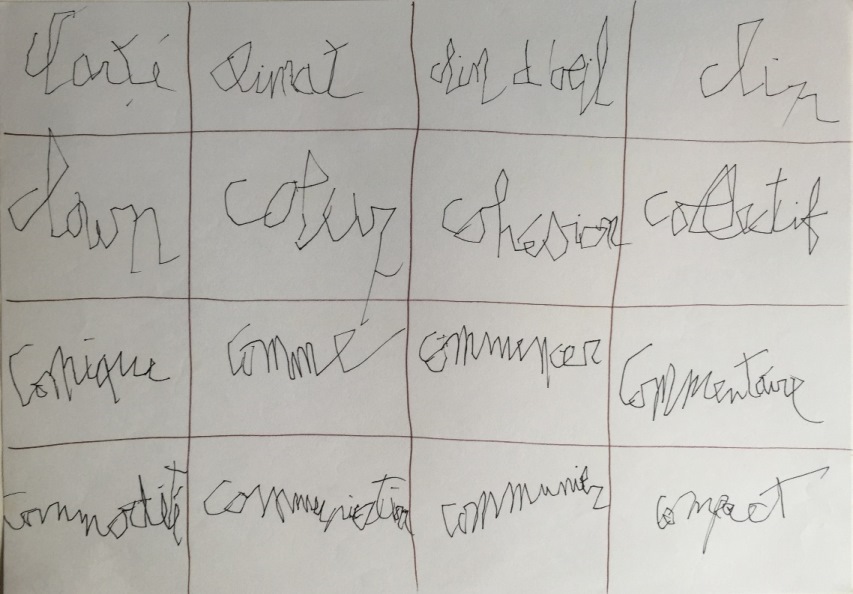 clarté climat clin d'oeil clin
clown coeur cohésion collectif
comique comme commencer commentaire
commodité communication communier compact